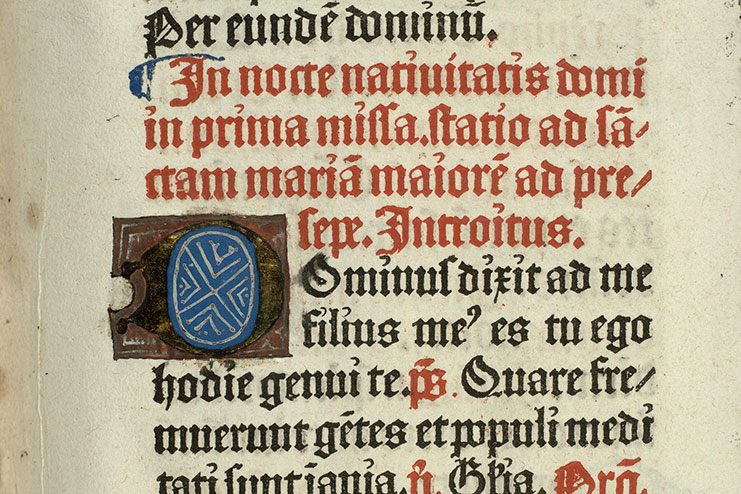 Per eundē dominū.
In nocte natiuitatis domi
in prima missa. statio ad sā/
ctam mariā maiorē ad pre/
sepe. Introitus.
DOminus dixit ad me
filius meꝰ es tu ego
hodie genui te. p̄s. Quare fre/
muerunt gētes et populi medi
tati sunt īania. Glīa. Orō.